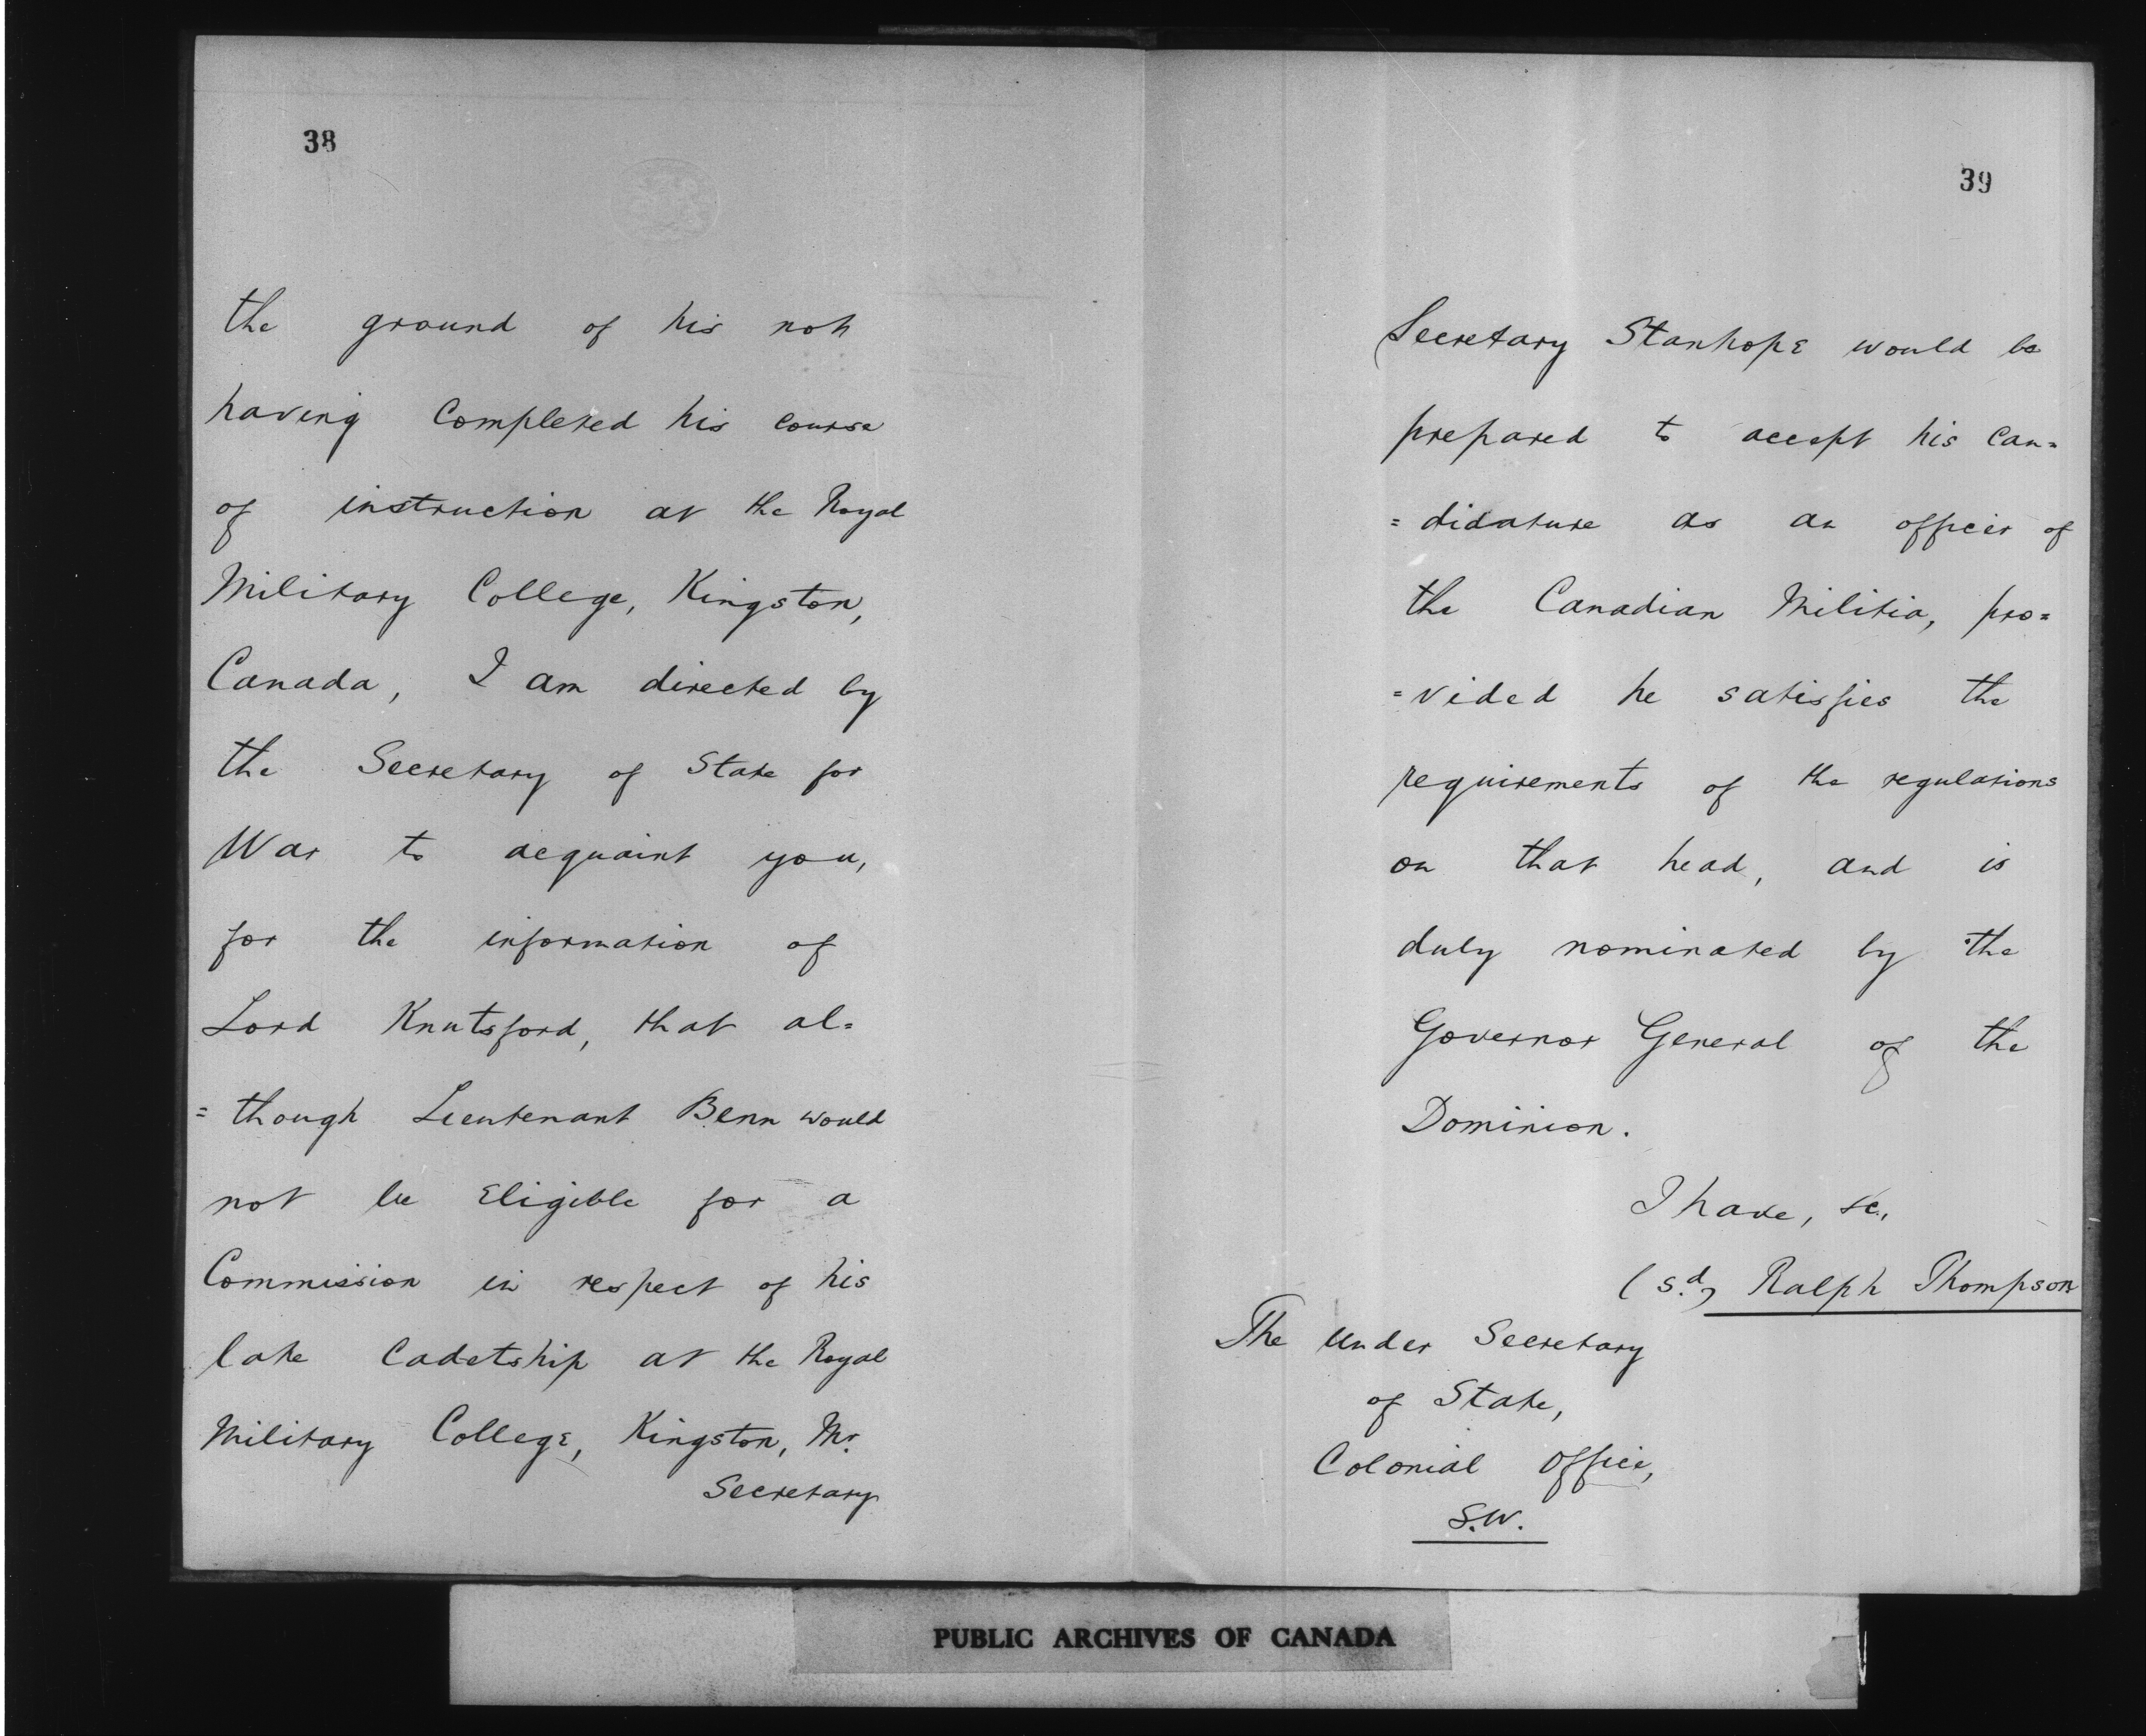 38
the ground of his not
having completed his course
of instruction at the Royal
Military College, Kingston,
Canada, I am directed by
the Secretary of State for
War to acquaint you,
for the information of
Lord Knutsford, that al=
=though Lieutenant Benn would
not be Eligible for a
Commission in respect of his
late Cadetship at the Royal
Military College, Kingston, Mr.
Secretary
39
Secretary Stanhope would be
prepared to accept his Can=
=didature as an officer of
the Canadian Militia, pro=
=vided he satisfies the
requirements of the regulations
on that head, and is
duly nominated by the
Governor General of the
Dominion.
I have, &c.,
(sd.) Ralph Thompson
The Under Secretary
of State,
Colonial Office,
S.W.
PUBLIC ARCHIVES OF CANADA